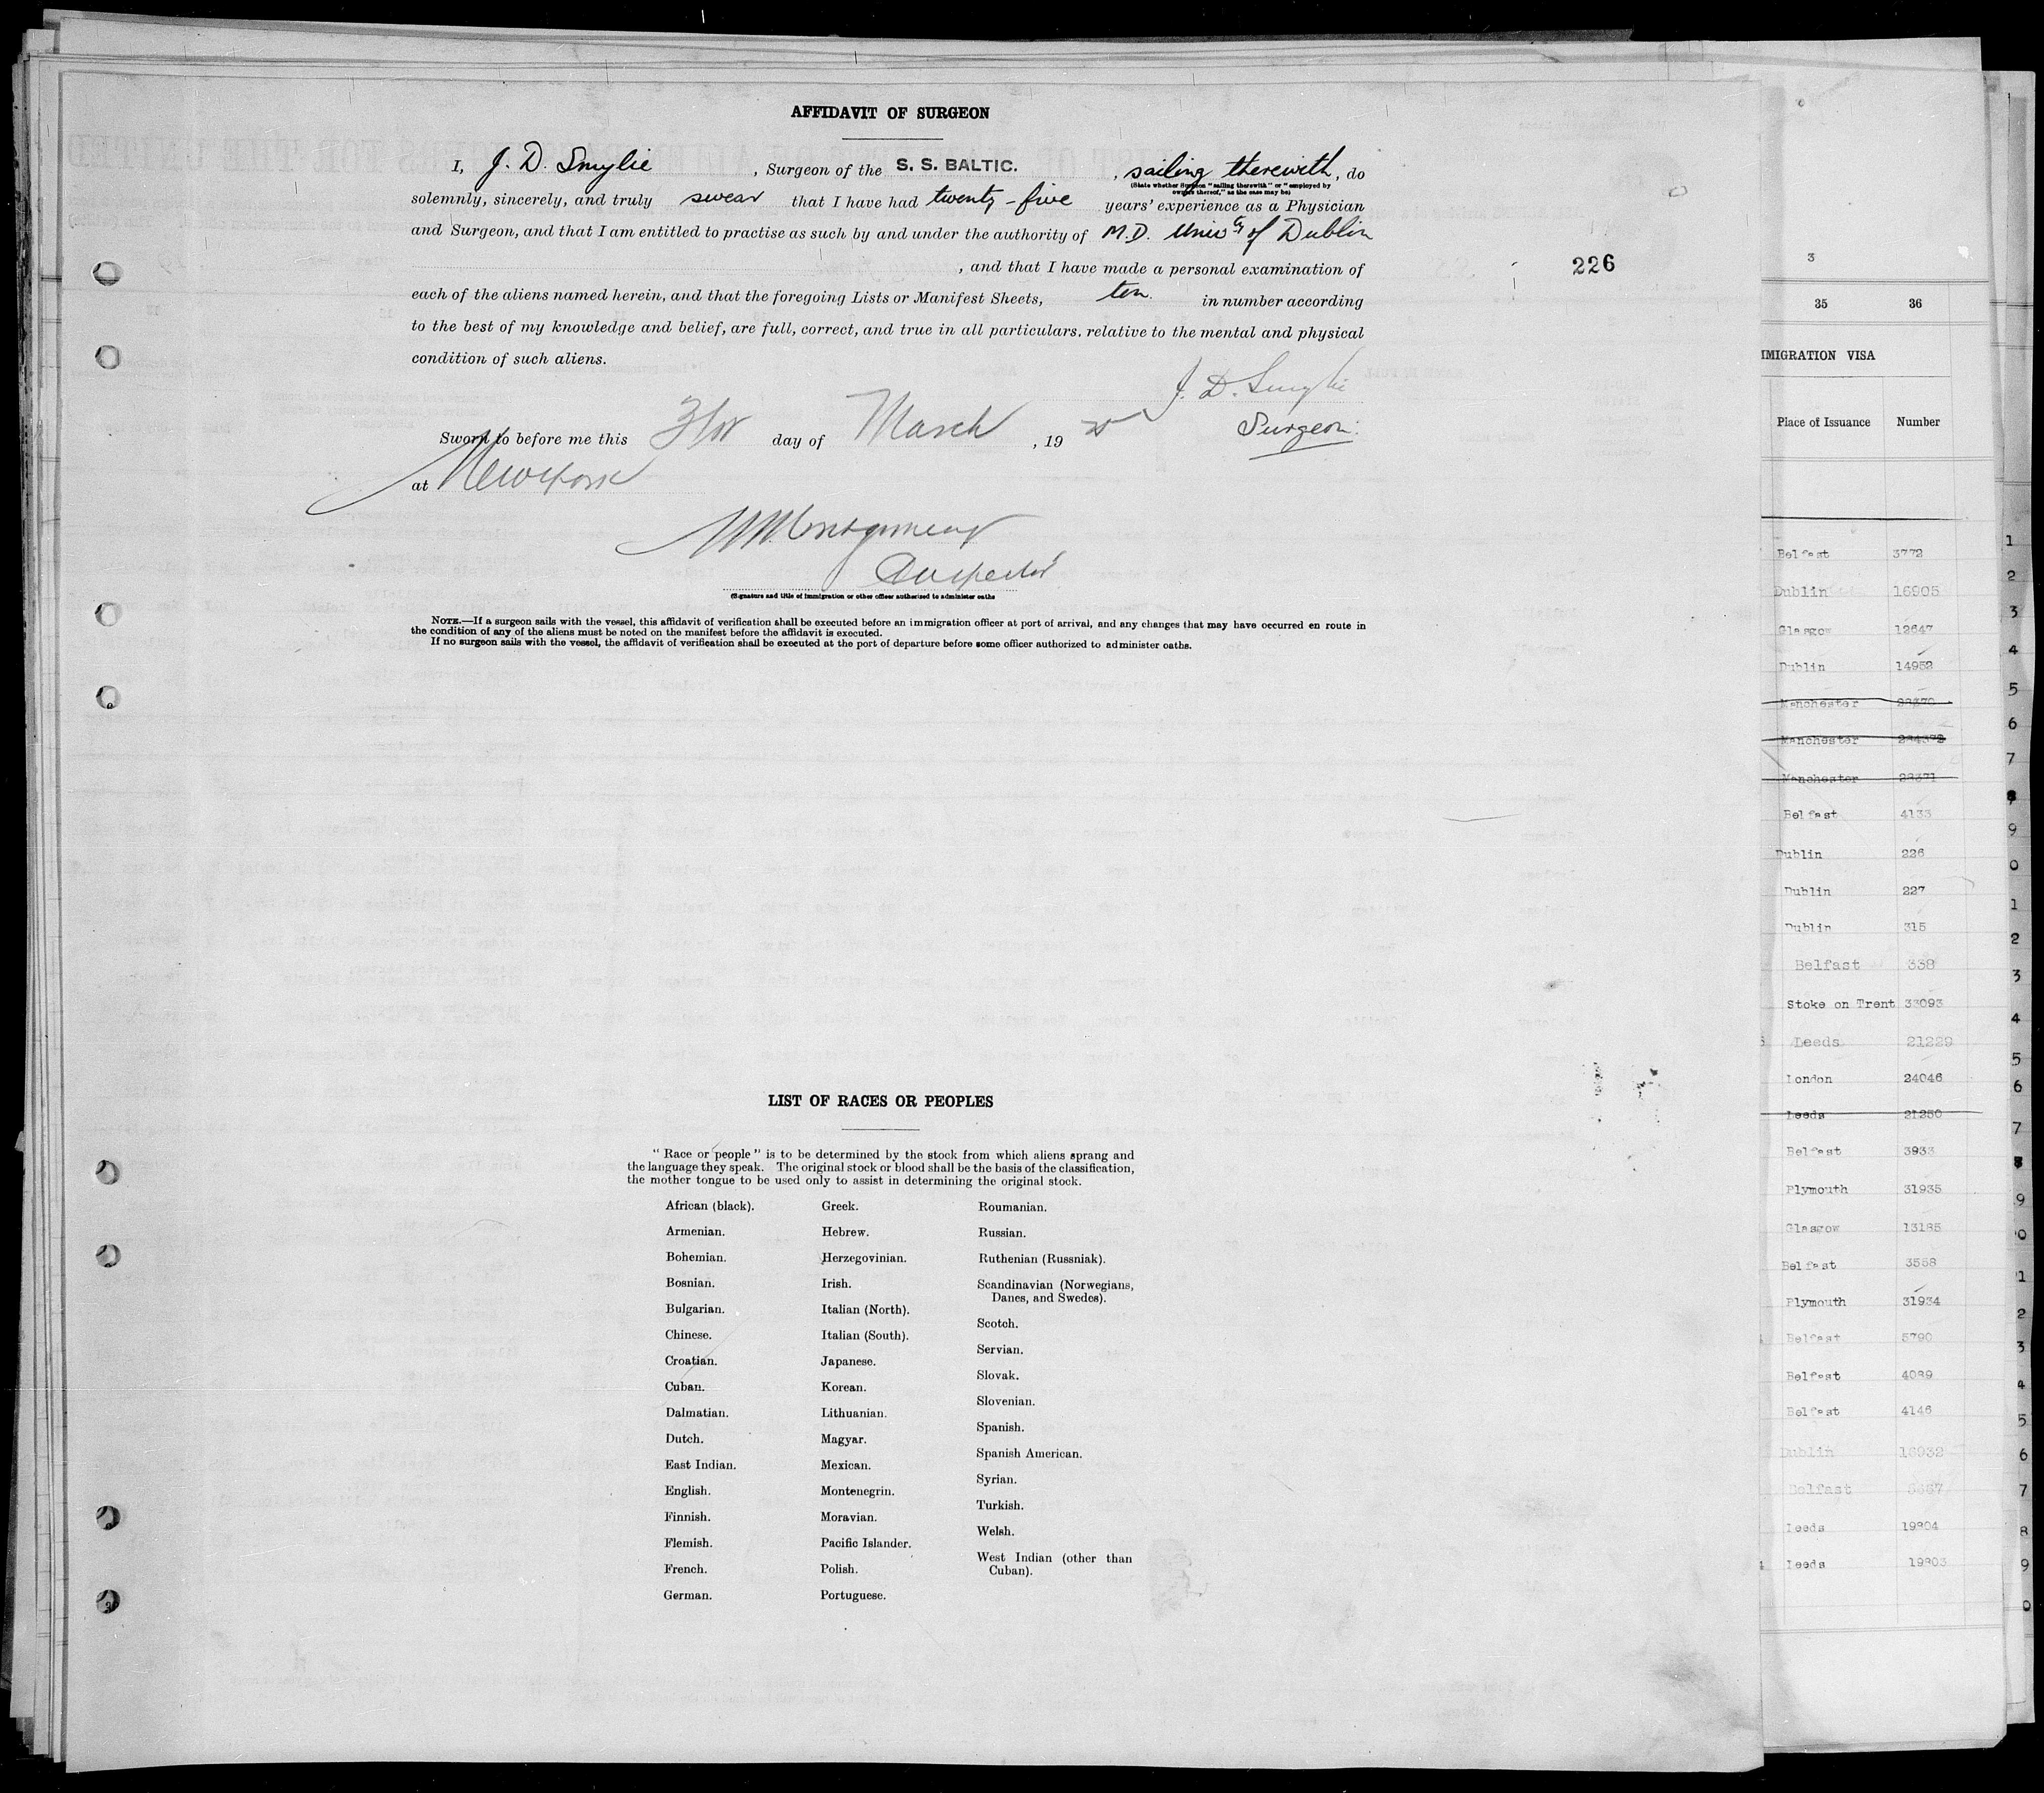 AFFIDAVIT OF SURGEON
I, J. D. Smylie, Surgeon of the S. S. BALTIC., sailing therewith, do
(State whether Surgeon "sailing therewith" or "employed by
owners thereof," as the case may be)
solemnly, sincerely, and truly swear that I have had twenty-five years' experience as a Physician
and Surgeon, and that I am entitled to practise as such by and under the authority of M.D. Univty of Dublin
, and that I have made a personal examination of
226
each of the aliens named herein, and that the foregoing Lists or Manifest Sheets, ten. in number according
to the best of my knowledge and belief, are full, correct, and true in all particulars, relative to the mental and physical
condition of such aliens.
J. D. Smylie
Surgeon.
Sworn to before me this 31st day of March, 19 25
at New York
Montgomery
Inspector
(Signature and title of immigration or other officer authorized to administer oaths
NOTE.—If a surgeon sails with the vessel, this affidavit of verification shall be executed before an immigration officer at port of arrival, and any changes that may have occurred en route in
the condition of any of the aliens must be noted on the manifest before the affidavit is executed.
If no surgeon sails with the vessel, the affidavit of verification shall be executed at the port of departure before some officer authorized to administer oaths.
LIST OF RACES OR PEOPLES
"Race or people" is to be determined by the stock from which aliens sprang and
the language they speak. The original stock or blood shall be the basis of the classification,
the mother tongue to be used only to assist in determining the original stock.
African (black).
Armenian.
Bohemian.
Bosnian.
Bulgarian.
Chinese.
Croatian.
Cuban.
Dalmatian.
Dutch.
East Indian.
English.
Finnish.
Flemish.
French.
German.
Greek.
Hebrew.
Herzegovinian.
Irish.
Italian (North).
Italian (South).
Japanese.
Korean.
Lithuanian.
Magyar.
Mexican.
Montenegrin.
Moravian.
Pacific Islander.
Polish.
Portuguese.
Roumanian.
Russian.
Ruthenian (Russniak).
Scandinavian (Norwegians,
Danes, and Swedes).
Scotch.
Servian.
Slovak.
Slovenian.
Spanish.
Spanish American.
Syrian.
Turkish.
Welsh.
West Indian (other than
Cuban).
3
35 36
IMMIGRATION VISA
Place of Issuance Number
Belfast 3772 1
Dublin 16905 2
Glasgow 12647 3
Dublin 14952 4
Manchester 28370 5
Manchester 284372 6
Manchester 28371 7
Belfast 4133 8
Dublin 226 9
Dublin 227 0
Dublin 315 1
Belfast 338 2
Stoke on Trent 33093 3
Leeds 21229 4
London 24046 5
Leeds 21250 6
Belfast 3933 7
Plymouth 31935 8
Glasgow 13185 9
Belfast 3558 0
Plymouth 31934 1
Belfast 5790 2
Belfast 4089 3
Belfast 4146 4
Dublin 16932 5
Belfast 6
Leeds 19804 7
Leeds 19803 8
9
0